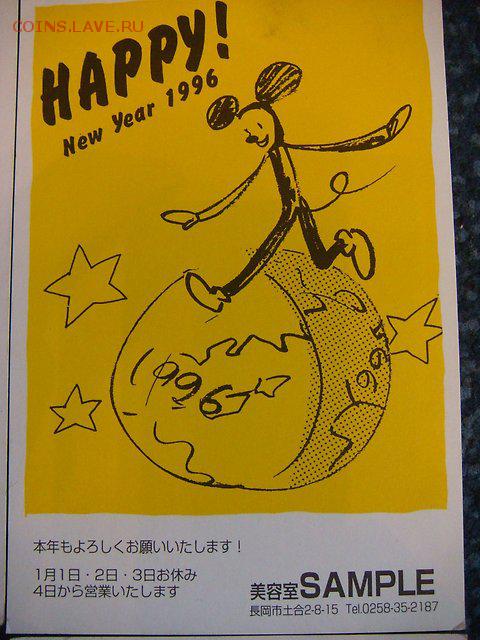 COINS.LAVE.RU
HAPPY!
New Year 1996
1996
本年もよろしくお願いいたします！
1月1日・2日・3日お休み
4日から営業いたします
美容室SAMPLE
長岡市土合2-8-15 Tel.0258-35-2187